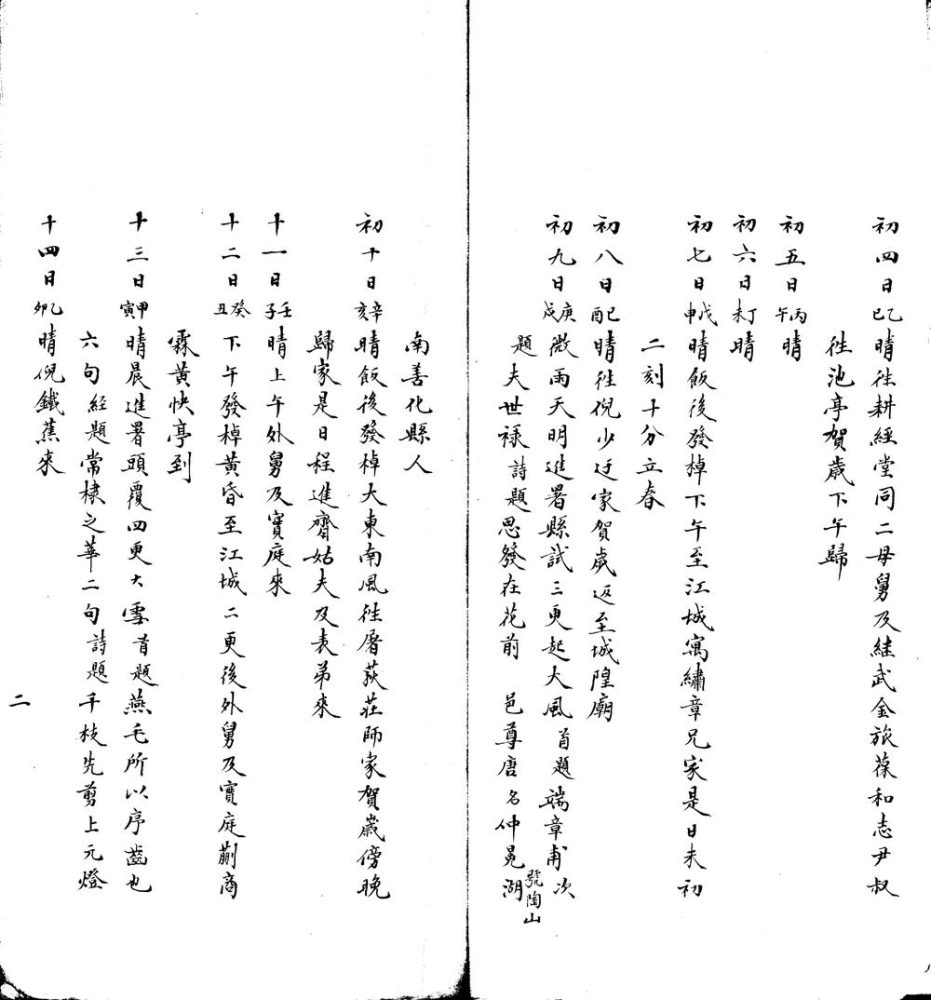 初四日乙巳晴往耕經堂同二母舅及絓武金旅葆和志尹叔
往池亭賀歲下午歸
初五日丙午晴
初六日丁未晴
初七日戊申晴飯後發棹下午至江城寓繡章兄家是日未初
二刻十分立春
初八日己酉晴往倪少迂家賀歲返至城隍廟
初九日庚戌微雨天明進署縣試三更起大風首題端章甫次
題夫世祿詩題思發在花前 邑尊唐名仲冕號陶山湖
南善化縣人
初十日辛亥晴飯後發棹大東南風往屠荻莊師家賀歲傍晚
歸家是日程進齋姑夫及表弟來
十一日壬子晴上午外舅及寶庭來
十二日癸丑下午發棹黃昏至江城二更後外舅及寶庭蒯商
霖黃快亭到
十三日甲寅晴晨進署頭覆四更大雪首題燕毛所以序齒也
六句經題常棣之華二句詩題千枝先剪上元燈
十四日乙卯晴倪鐵蕉來
二